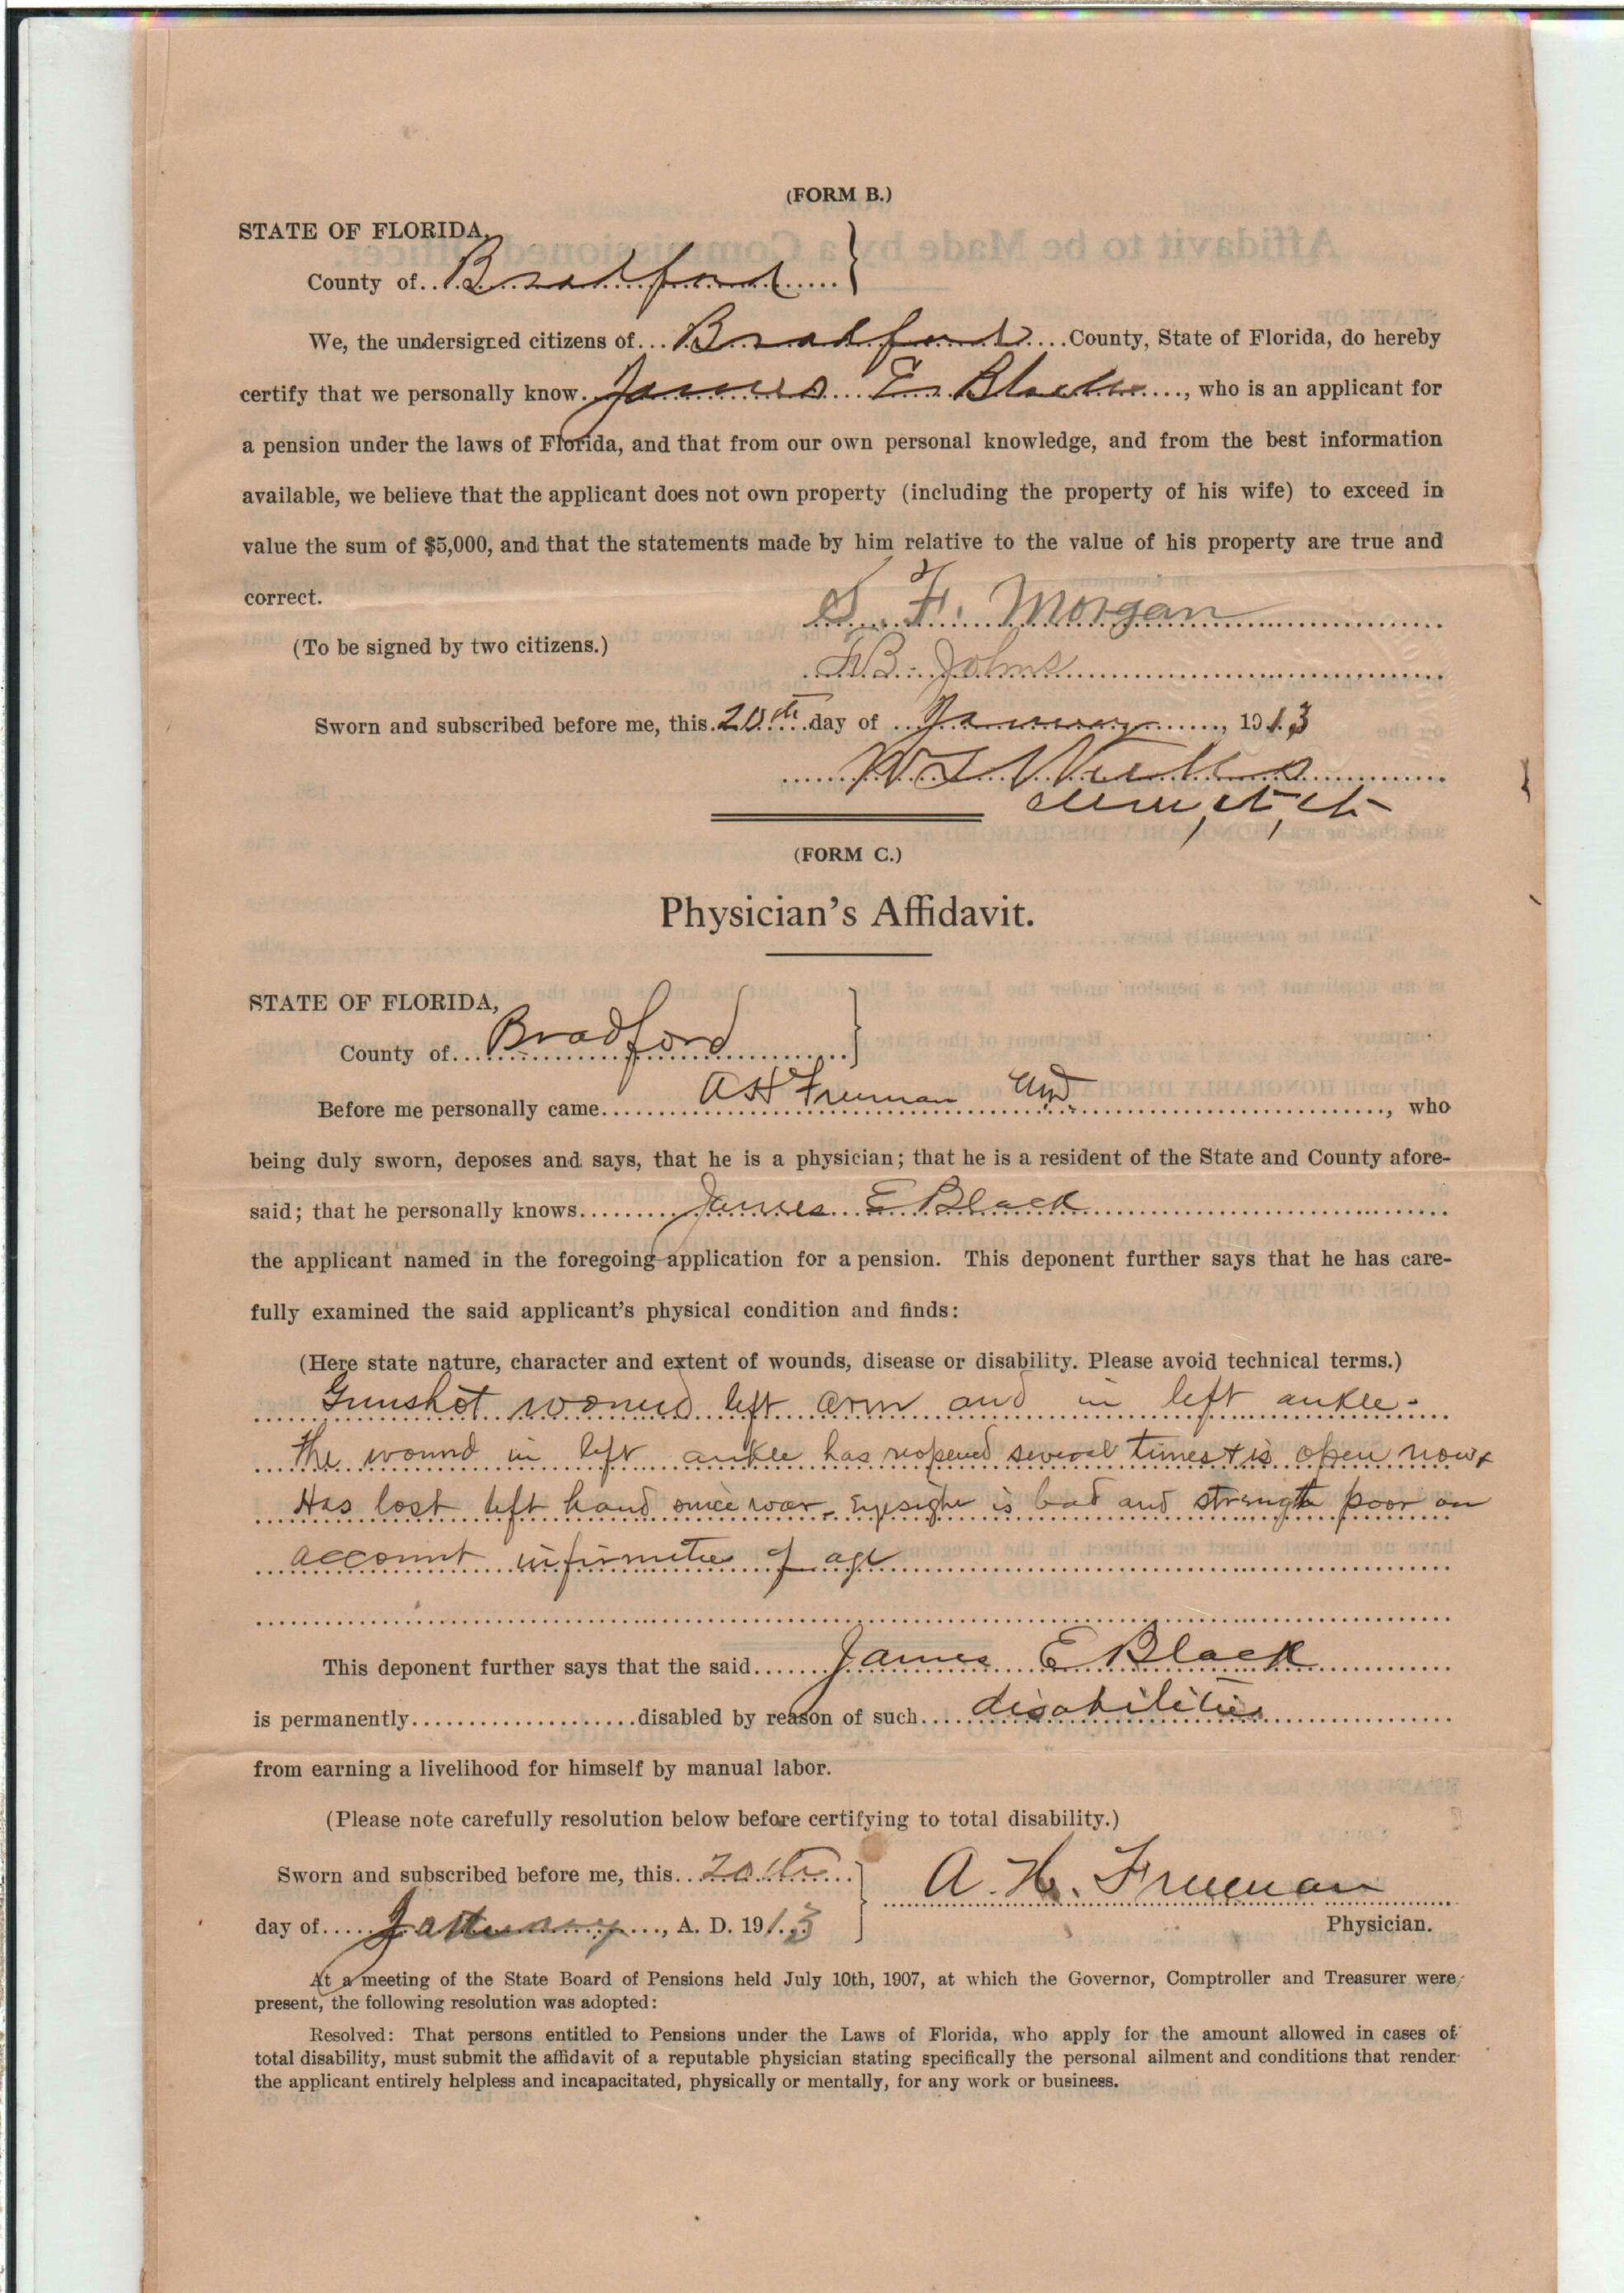 (FORM B.)
STATE OF FLORIDA,
County of Bradford
We, the undersigned citizens of Bradford County, State of Florida, do hereby
certify that we personally know James E. Black, who is an applicant for
a pension under the laws of Florida, and that from our own personal knowledge, and from the best information
available, we believe that the applicant does not own property (including the property of his wife) to exceed in
value the sum of $5,000, and that the statements made by him relative to the value of his property are true and
correct.
S. F. Morgan
(To be signed by two citizens.)
Johns
Sworn and subscribed before me, this 20th day of January, 1913
(FORM C.)
Physician's Affidavit.
STATE OF FLORIDA,
County of Bradford
Before me personally came A H Freeman MD., who
being duly sworn, deposes and says, that he is a physician; that he is a resident of the State and County afore-
said; that he personally knows James E Black
the applicant named in the foregoing application for a pension. This deponent further says that he has care-
fully examined the said applicant's physical condition and finds:
(Here state nature, character and extent of wounds, disease or disability. Please avoid technical terms.)
Gunshot wound left arm and in left ankle -
the wound in left ankle has reopened several times & is open now &
Has lost left hand since war. Eyesight is bad and strength poor on
account infirmitie of age
This deponent further says that the said James E Black
is permanently disabled by reason of such disabilities
from earning a livelihood for himself by manual labor.
(Please note carefully resolution below before certifying to total disability.)
Sworn and subscribed before me, this 20th
A. H. Freeman
day of January, A. D. 1913
Physician.
At a meeting of the State Board of Pensions held July 10th, 1907, at which the Governor, Comptroller and Treasurer were
present, the following resolution was adopted:
Resolved: That persons entitled to Pensions under the Laws of Florida, who apply for the amount allowed in cases of
total disability, must submit the affidavit of a reputable physician stating specifically the personal ailment and conditions that render
the applicant entirely helpless and incapacitated, physically or mentally, for any work or business.